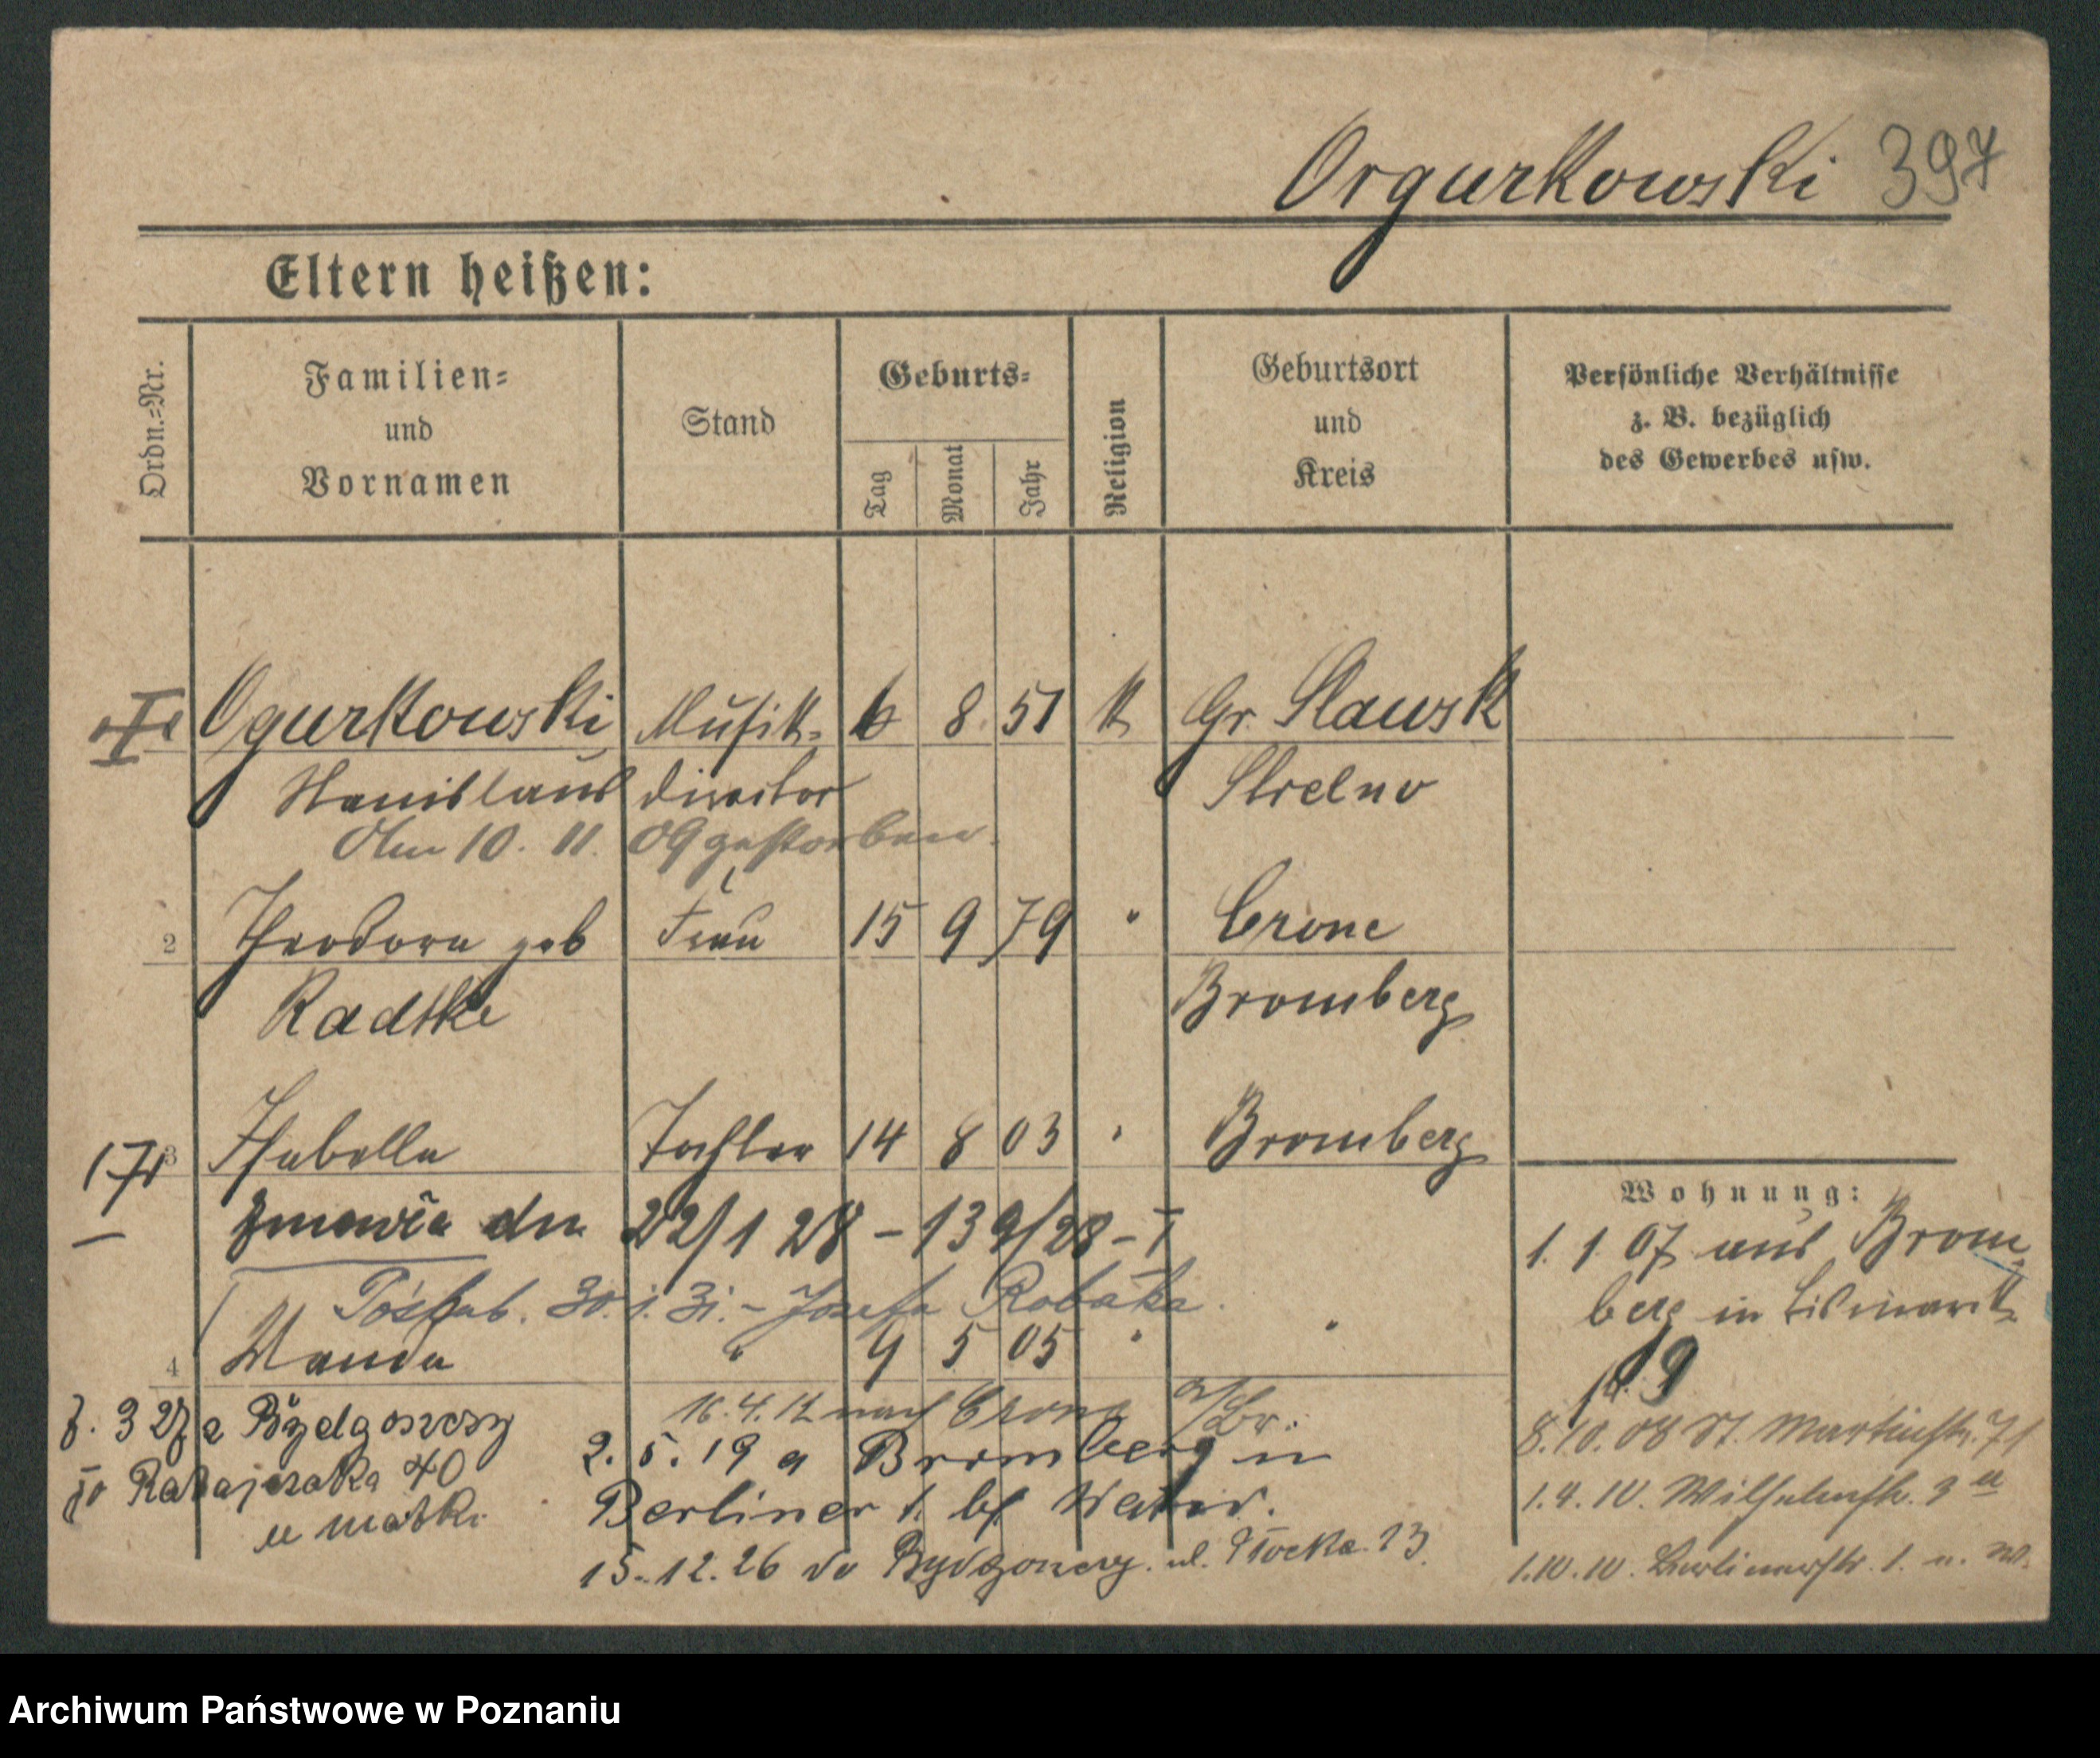 Orgurkowski 397
Eltern heißen:
Ordn.=Nr.
Familien=
und
Vornamen
Stand
Geburts=
Tag
Monat
Jahr
Religion
Geburtsort
und
Kreis
Persönliche Verhältnisse
z. B. bezüglich
des Gewerbes usw.
Ogurkowski Musik= 6 8 51 k Gr. Slawsk
Stanislaus director Strelno
Am 10. 11. 09 gestorben.
2 Theodora geb Frau 15 9 79 " Crone
Radtke Bromberg
3 Isabella Tochter 14 8 03 " Bromberg
171
zmarła dn 22/1 28 – 139/28 – I
30. 1. 31. – Józefa
4 Wanda " 9 5 05 " "
Wohnung:
1. 1 07 aus Brom=
berg in Bismarck
19
8. 10. 08 St. Martinstr. 71
1. 4. 10. Wilhelmstr. 3 a
1. 10. 10. Berlinerstr. 1.
16. 4. 12 nach Crone a/Br.
2. 5. 19 a Bromberg in
Berliner 1. bf
15. 12. 26 do Bydgoszczy. ul. 13.
3 27 z Bydgoszczy
Ratajczaka 40
u matki
Archiwum Państwowe w Poznaniu